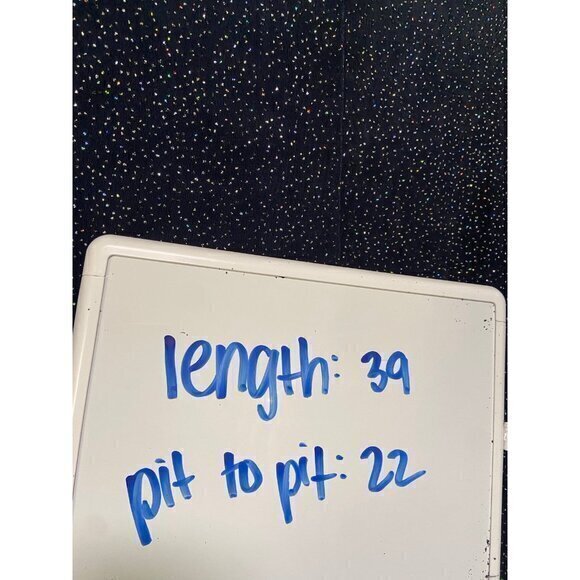 length: 39
pit to pit: 22